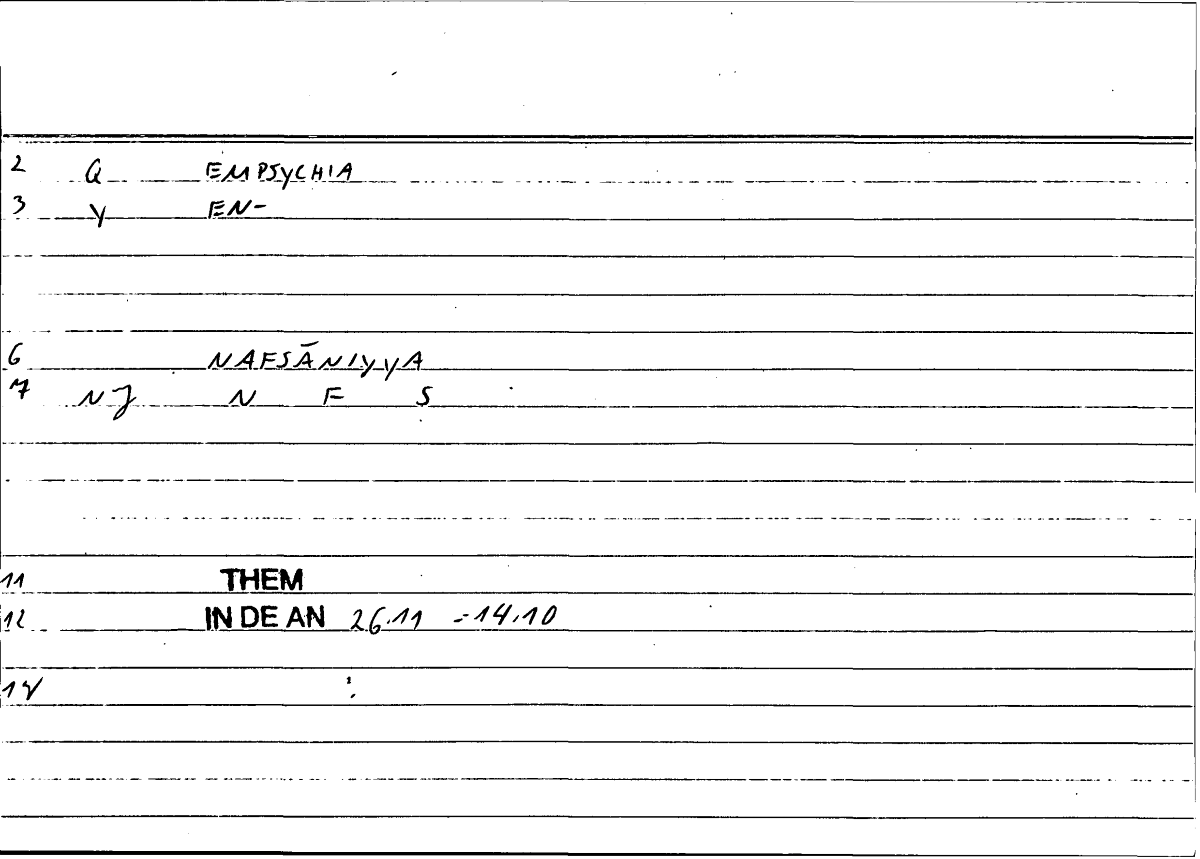 2 Q EMPSYCHIA
3 Y EN-
6 NAFSĀNIYYA
7 NJ N F S
11 THEM
12 IN DE AN 26.11 = 14.10
14 :